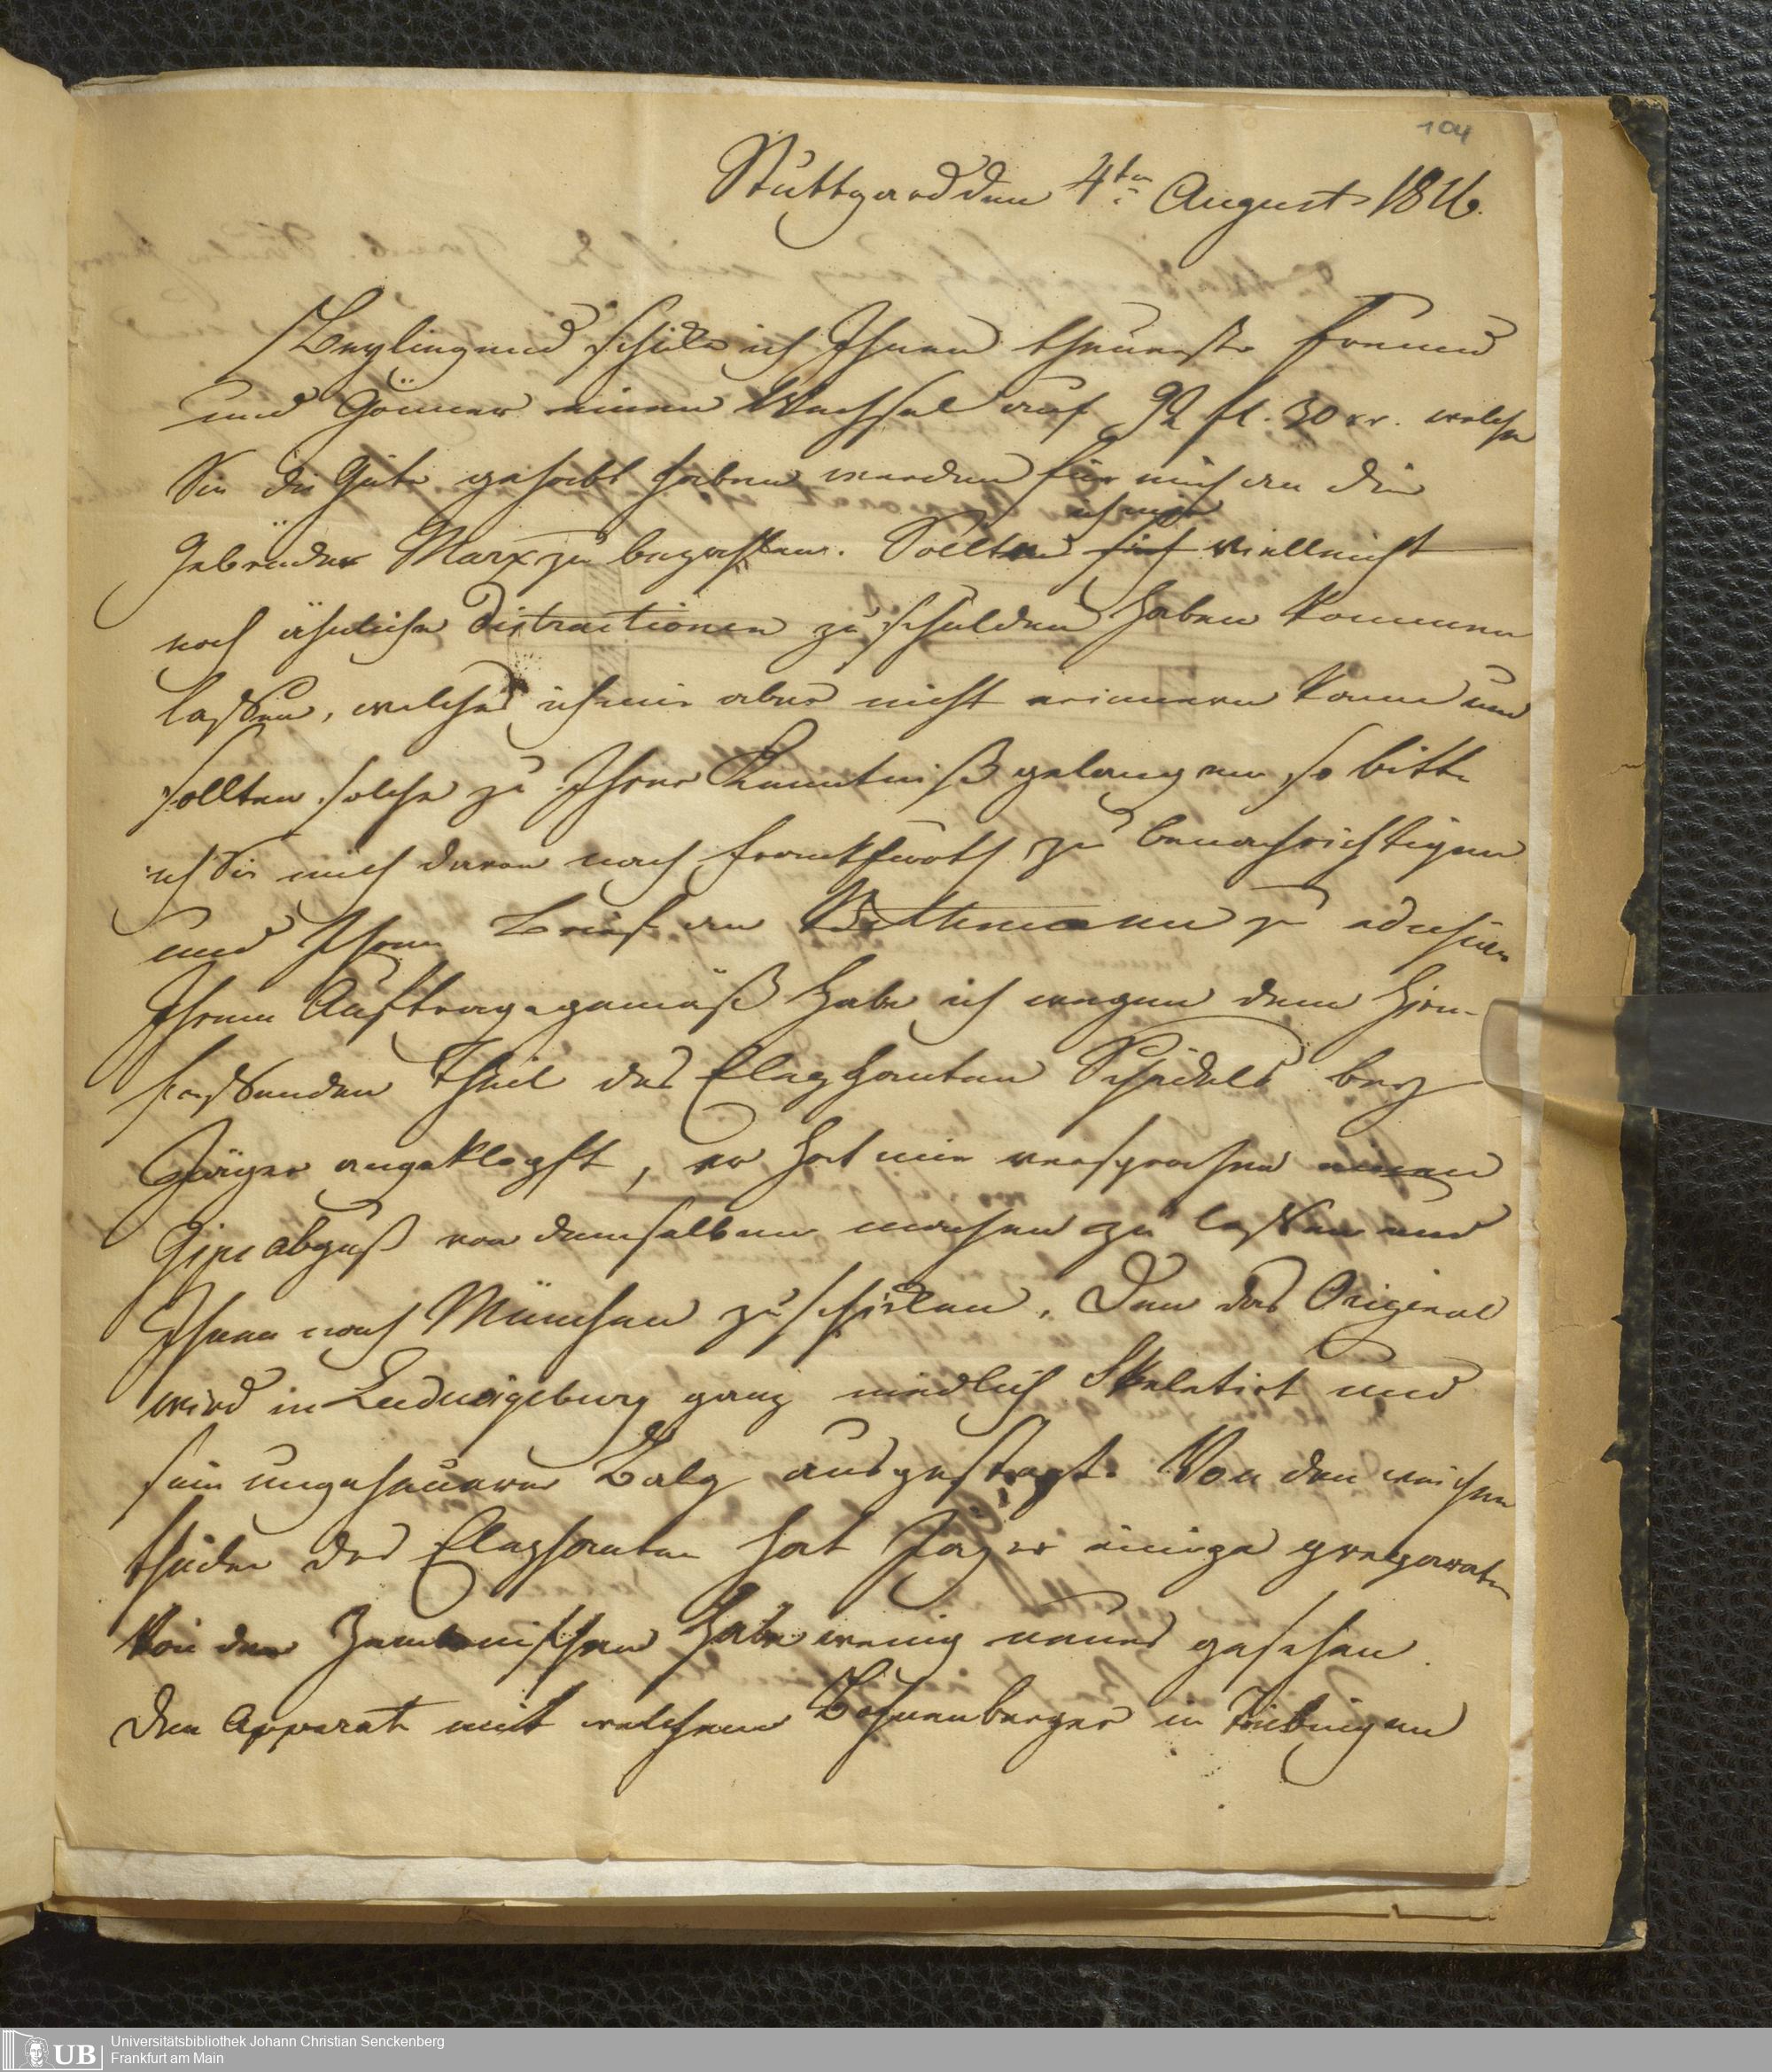 104
Stuttgard den 4ten August 1816.
Beyliegend schicke ich Ihnen theuerster Freund
und Gönner einen Wechsel auf 92 fl. 30 xr. welche
Sie die Güte gehabt haben werden für mich an die
Gebrüder Marx zu bezahlen. Sollte ich mir vielleicht
noch ähnliche Distractionen zu schulden haben kommen
lassen, welches ich mir aber nicht erinnern kann und
sollten solche zu Ihrer Kenntniß gelangen, so bitte
ich Sie mich davon nach Frankfurth zu benachrichtigen
und Ihren Brief an Bethmann zu
Ihrem Auftrage gemäß habe ich wegen dem Hirn-
fassenden Theil des Elephanten Schädels bey
Jäger angeklopft, er hat mir versprochen einen
Gipsabguß von demselben machen zu lassen und
Ihnen nach München zu schicken. Den das Original
wird in Ludwigsburg ganz niedlich Skeletirt und
sein ungeheuerer Balg ausgestopft. Von den weichen
theilen des Elephanten hat Jäger einige preparate
Von den habe wenig neues gesehen.
Den Apparat mit welchem Bohnenberger in Tübingen
UB
Universitätsbibliothek Johann Christian Senckenberg
Frankfurt am Main